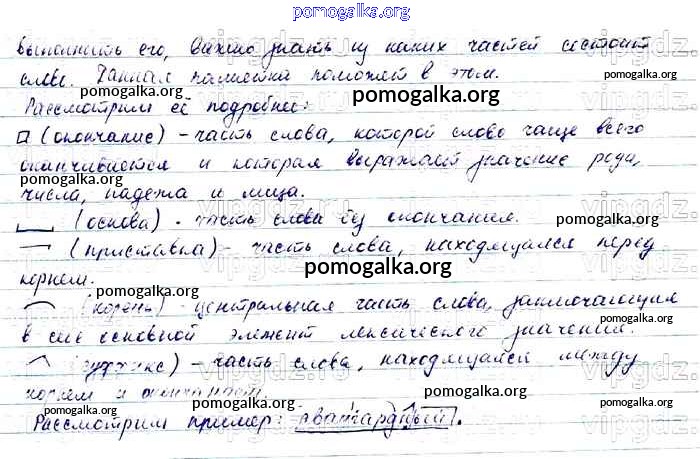 pomogalka.org
выполнить его, важно знать из каких частей состоит
слово. Данная памятка поможет в этом.
pomogalka.org
Рассмотрим её подробнее:
(окончание) - часть слова, которой слово чаще всего
оканчивается и которая выражает значение рода,
pomogalka.org
числа, падежа и лица.
(основа) - часть слова без окончания.
pomogalka.org
(приставка) - часть слова, находящаяся перед
корнем.
pomogalka.org
(корень) - центральная часть слова, заключающая
в себе основной элемент лексического значения.
pomogalka.org
(суффикс) - часть слова, находящаяся между
корнем и окончанием.
pomogalka.org
pomogalka.org
Рассмотрим пример: авангардный.